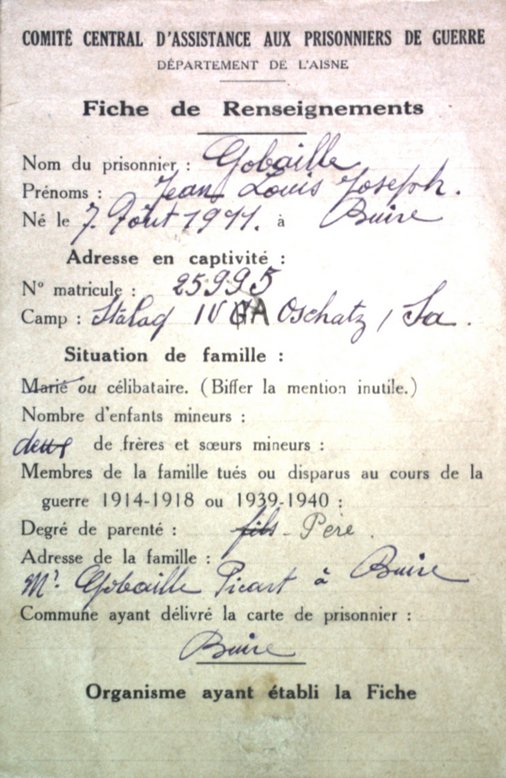 COMITÉ CENTRAL D'ASSISTANCE AUX PRISONNIERS DE GUERRE
DÉPARTEMENT DE L'AISNE
Fiche de Renseignements
Nom du prisonnier : Gobaille
Prénoms : Jean Louis Joseph.
Né le 7. Août 1911. à Buire
Adresse en captivité :
N° matricule : 25995
Camp : Stalag IV A Oschatz / Sa.
Situation de famille :
Marié ou célibataire. (Biffer la mention inutile.)
Nombre d'enfants mineurs :
deux de frères et sœurs mineurs :
Membres de la famille tués ou disparus au cours de la
guerre 1914-1918 ou 1939-1940 :
Degré de parenté : fils - Pere.
Adresse de la famille :
Mr. Gobaille Picart à Buire
Commune ayant délivré la carte de prisonnier :
Buire
Organisme ayant établi la Fiche